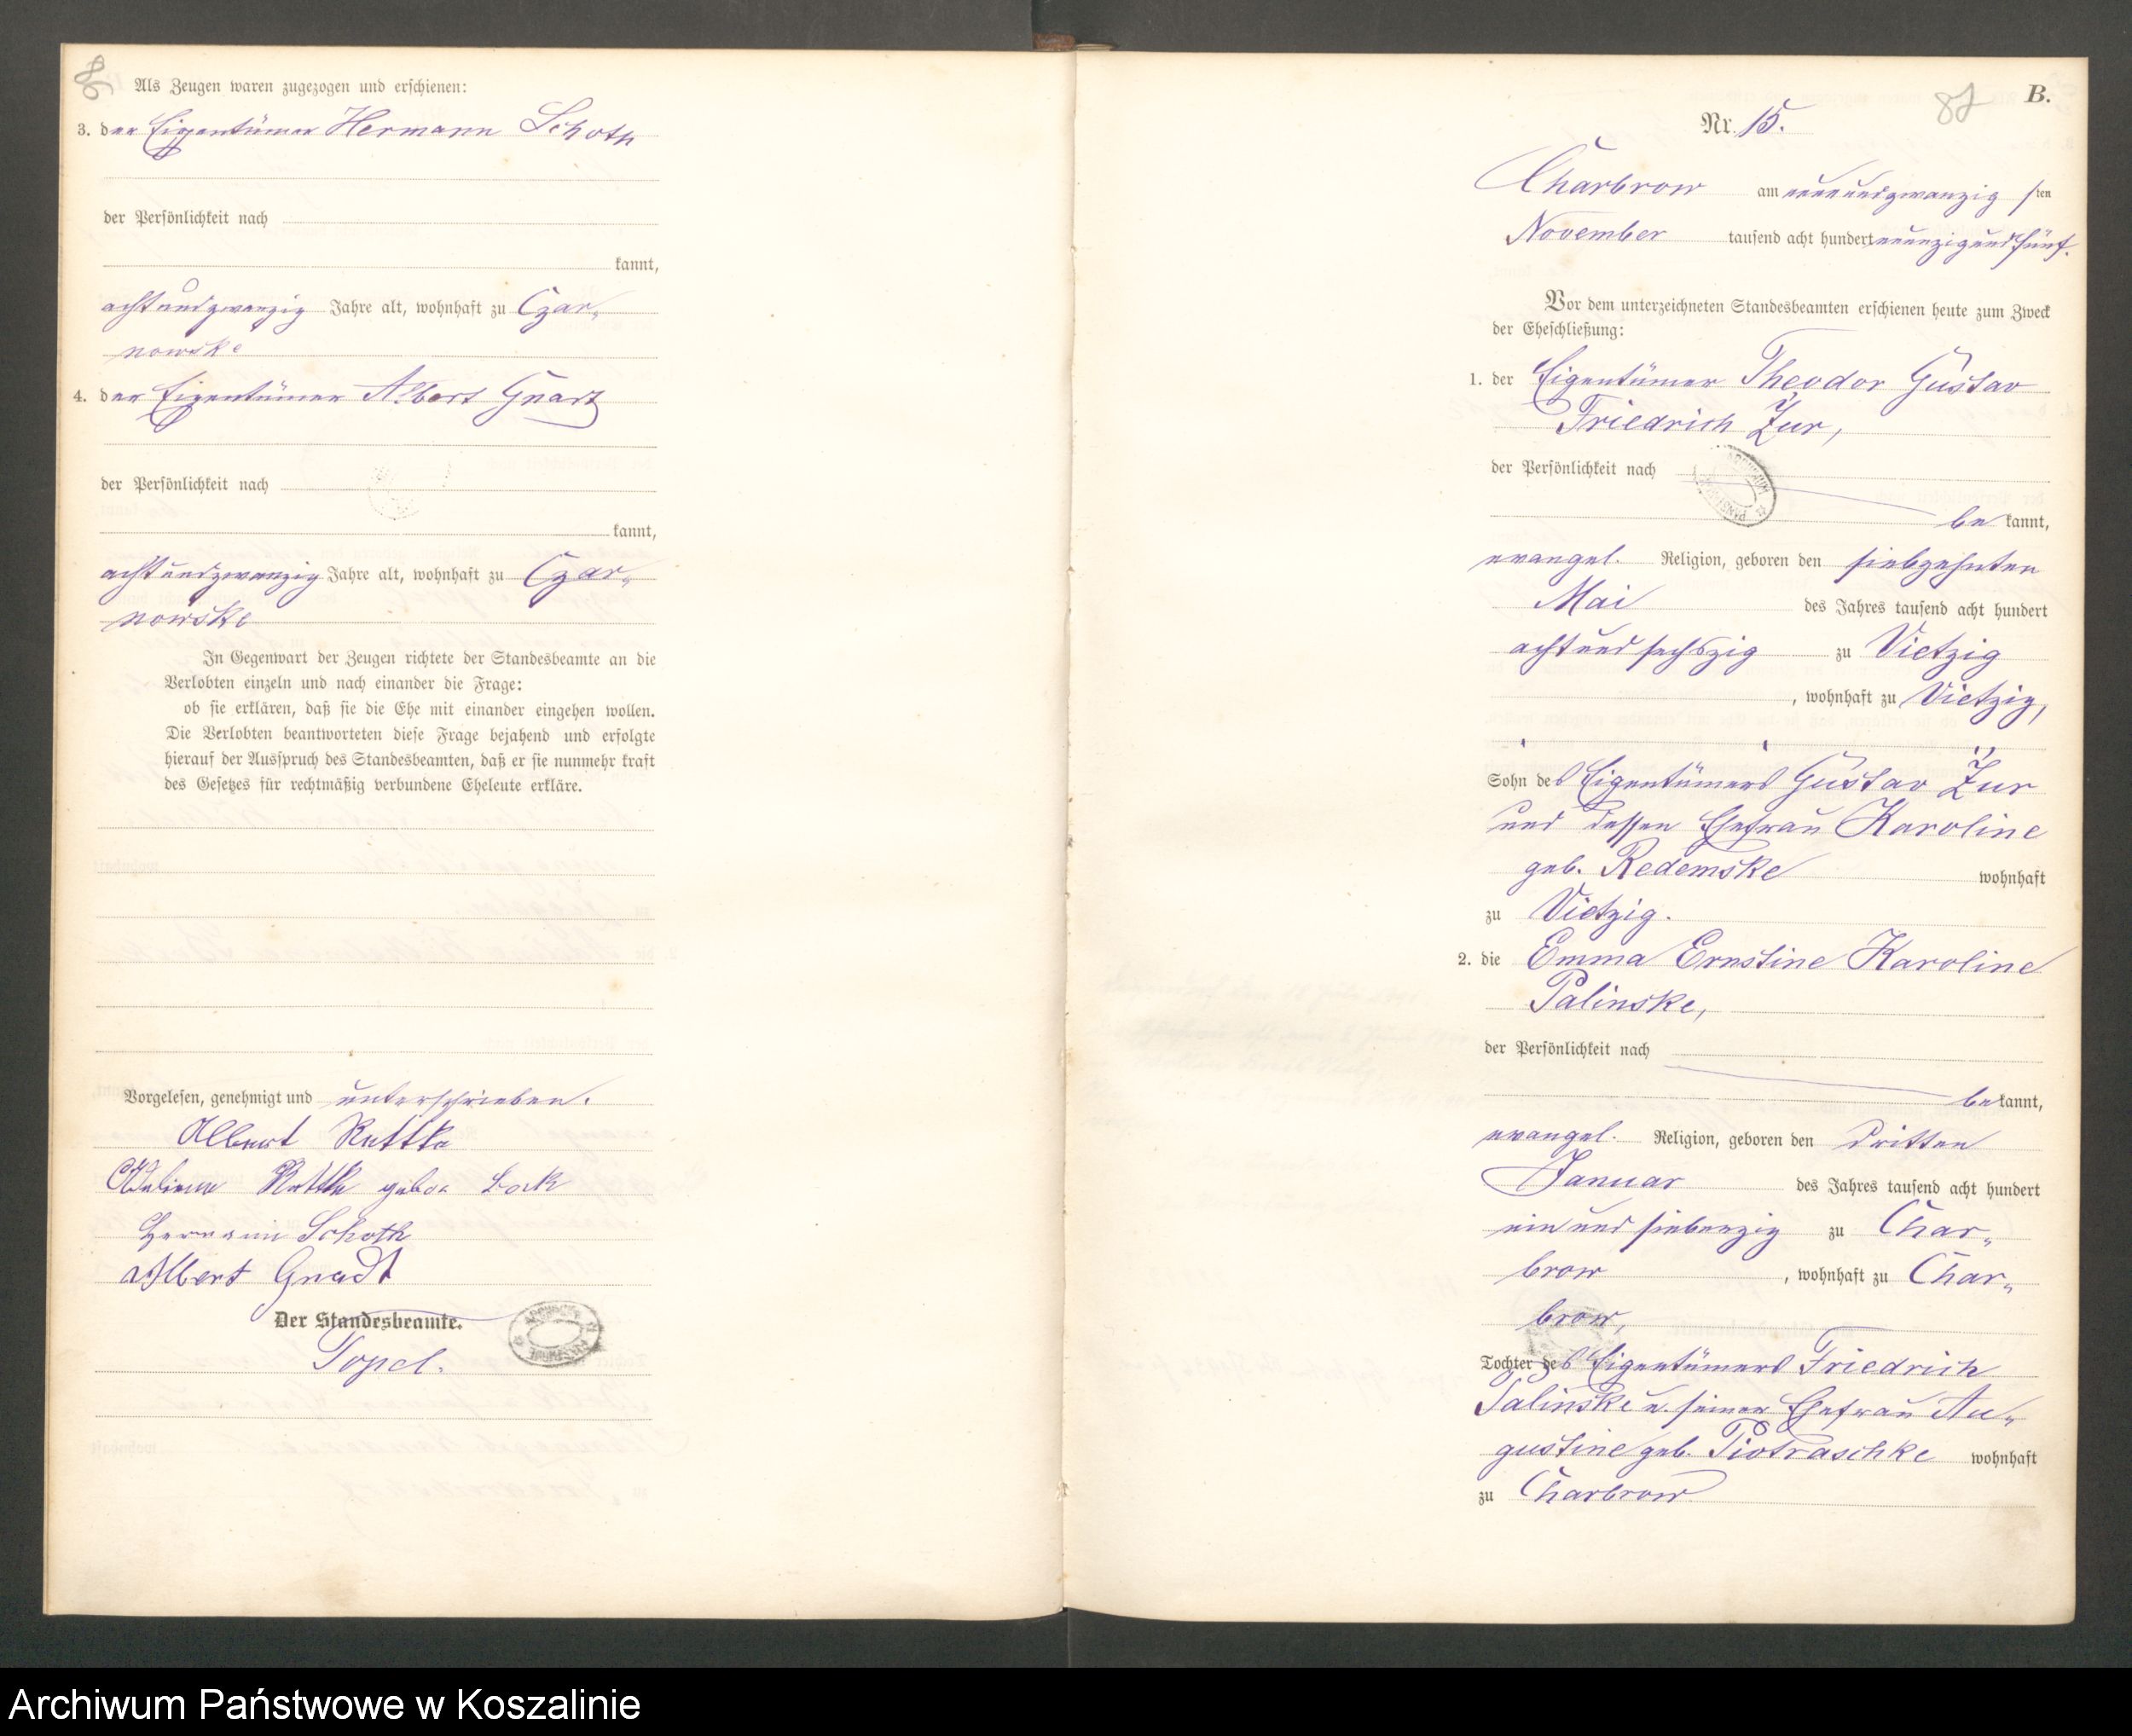 Als Zeugen waren zugezogen und erschienen:
3. der Eigentümer Hermann Schoth
der Persönlichkeit nach
kannt,
achtundzwanzig Jahre alt, wohnhaft zu Czar-
nowske
4. der Eigentümer Albert Gnadt
der Persönlichkeit nach
kannt,
achtundzwanzig Jahre alt, wohnhaft zu Czar-
nowske
In Gegenwart der Zeugen richtete der Standesbeamte an die
Verlobten einzeln und nach einander die Frage:
ob sie erklären, daß sie die Ehe mit einander eingehen wollen.
Die Verlobten beantworteten diese Frage bejahend und erfolgte
hierauf der Ausspruch des Standesbeamten, daß er sie nunmehr kraft
des Gesetzes für rechtmäßig verbundene Eheleute erkläre.
Vorgelesen, genehmigt und unterschrieben.
Albert Rettke
Rettke gebor
Hermann Schoth
Albert Gnadt
Der Standesbeamte.
Topel.
B.
Nr. 15.
Charbrow am neunundzwanzigsten
November tausend acht hundert neunzigundfünf.
Vor dem unterzeichneten Standesbeamten erschienen heute zum Zweck
der Eheschließung:
1. der Eigentümer Theodor Gustav
Friedrich Zur,
der Persönlichkeit nach
be kannt,
evangel. Religion, geboren den siebzehnten
Mai des Jahres tausend acht hundert
achtundsechszig zu Vietzig
, wohnhaft zu Vietzig,
Sohn des Eigentümers Gustav Zur
und dessen Ehefrau Karoline
geb. Redemske wohnhaft
zu Vietzig.
2. die Emma Ernstine Karoline
Palinske,
der Persönlichkeit nach
be kannt,
evangel. Religion, geboren den dritten
Januar des Jahres tausend acht hundert
einundsiebenzig zu Char-
brow, wohnhaft zu Char-
brow,
Tochter des Eigentümers Friedrich
Palinske u. seiner Ehefrau Au-
gustine geb. Piotraschke wohnhaft
zu Charbrow
Archiwum Państwowe w Koszalinie